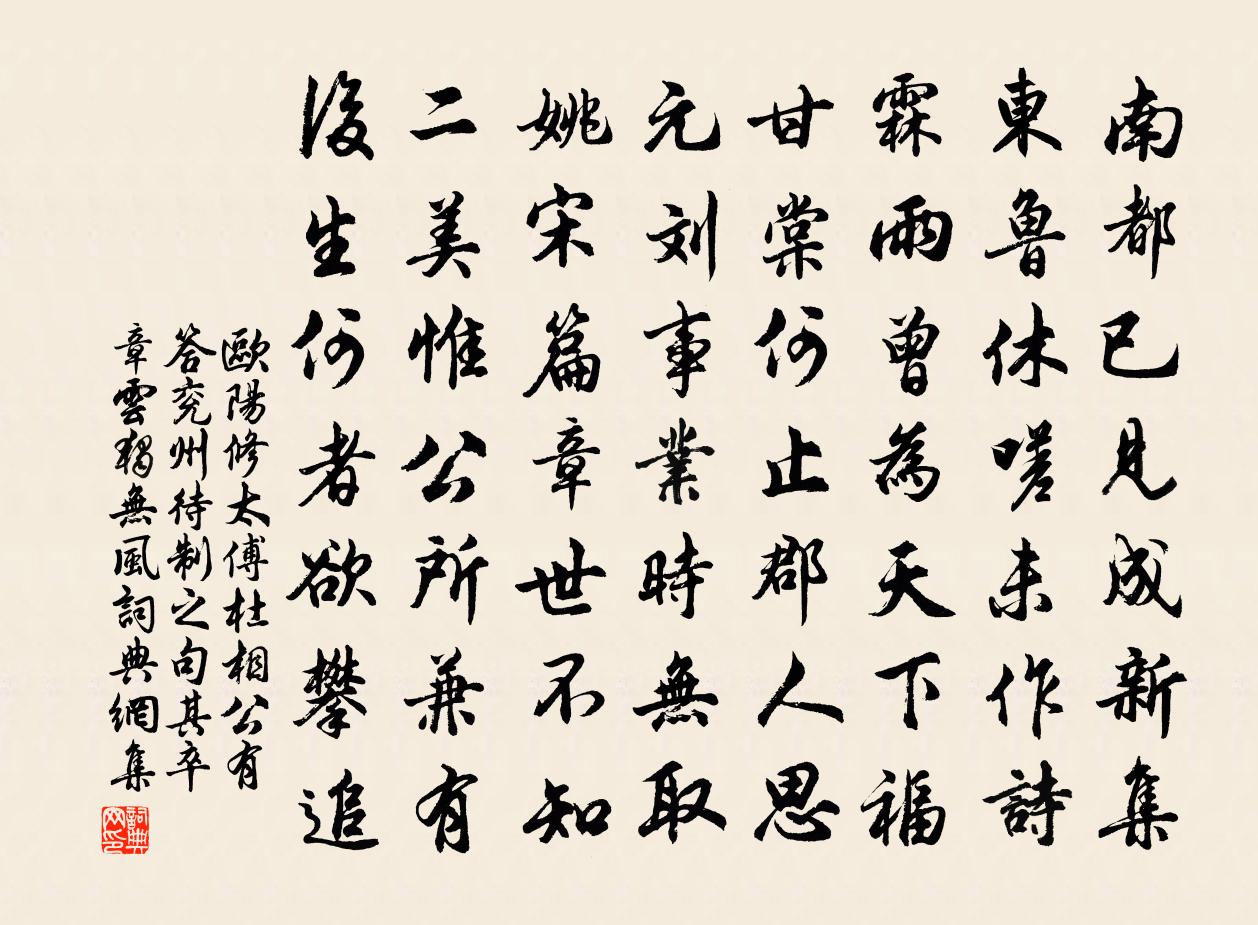 南都已見成新集
東魯休嗟未作詩
霖雨曾為天下福
甘棠何止郡人思
元刘事業時無取
姚宋篇章世不知
二美惟公所兼有
後生何者欲攀追
歐陽修太傅杜相公有
答兖州待制之句其卒
章雲獨無風詞典網集
詞典網印